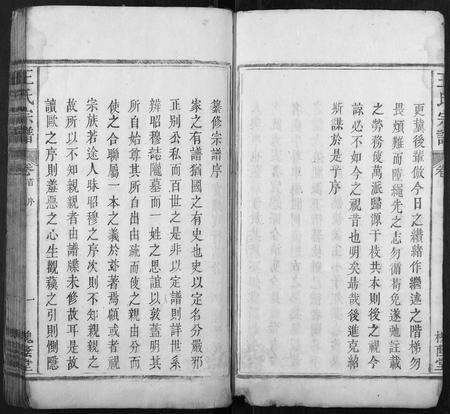 更冀後輩倣今日之續緒作繼述之階梯勿
畏煩難而隳繩先之志勿循苟免遂弛註載
之勞務俾萬派歸源千枝共本則後之視今
諒必不如今之視昔也明矣勗哉後進克紹
斯謀於是乎序
王氏宗譜
卷
纂修宗譜序
家之有譜猶國之有史也史以定名分嚴邪
正別公私而百世之是非以定譜則詳世系
辨昭穆誌隴墓而一姓之恩誼以敦蓋明其
所自始尊其所自出由統而使之親由分而
使之合聯屬一本之義於玆著焉顧或者視
宗族若途人昧昭穆之序次則不知親親之
故所以不知親親者由譜牒未修故耳是故
讀歐之序則羞惡之心生觀蘇之引則惻隱
王氏宗譜
卷首 序
一
槐蔭堂